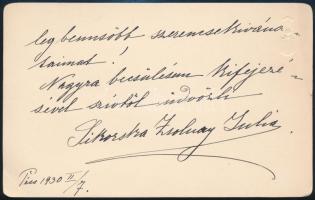 legbensőbb szerencsekívána-
taimat!
Nagyra becsülésem kifejezé-
sével szívből üdvözli
Sikorska Zsolnay Julia.
Pécs 1930 II/7.